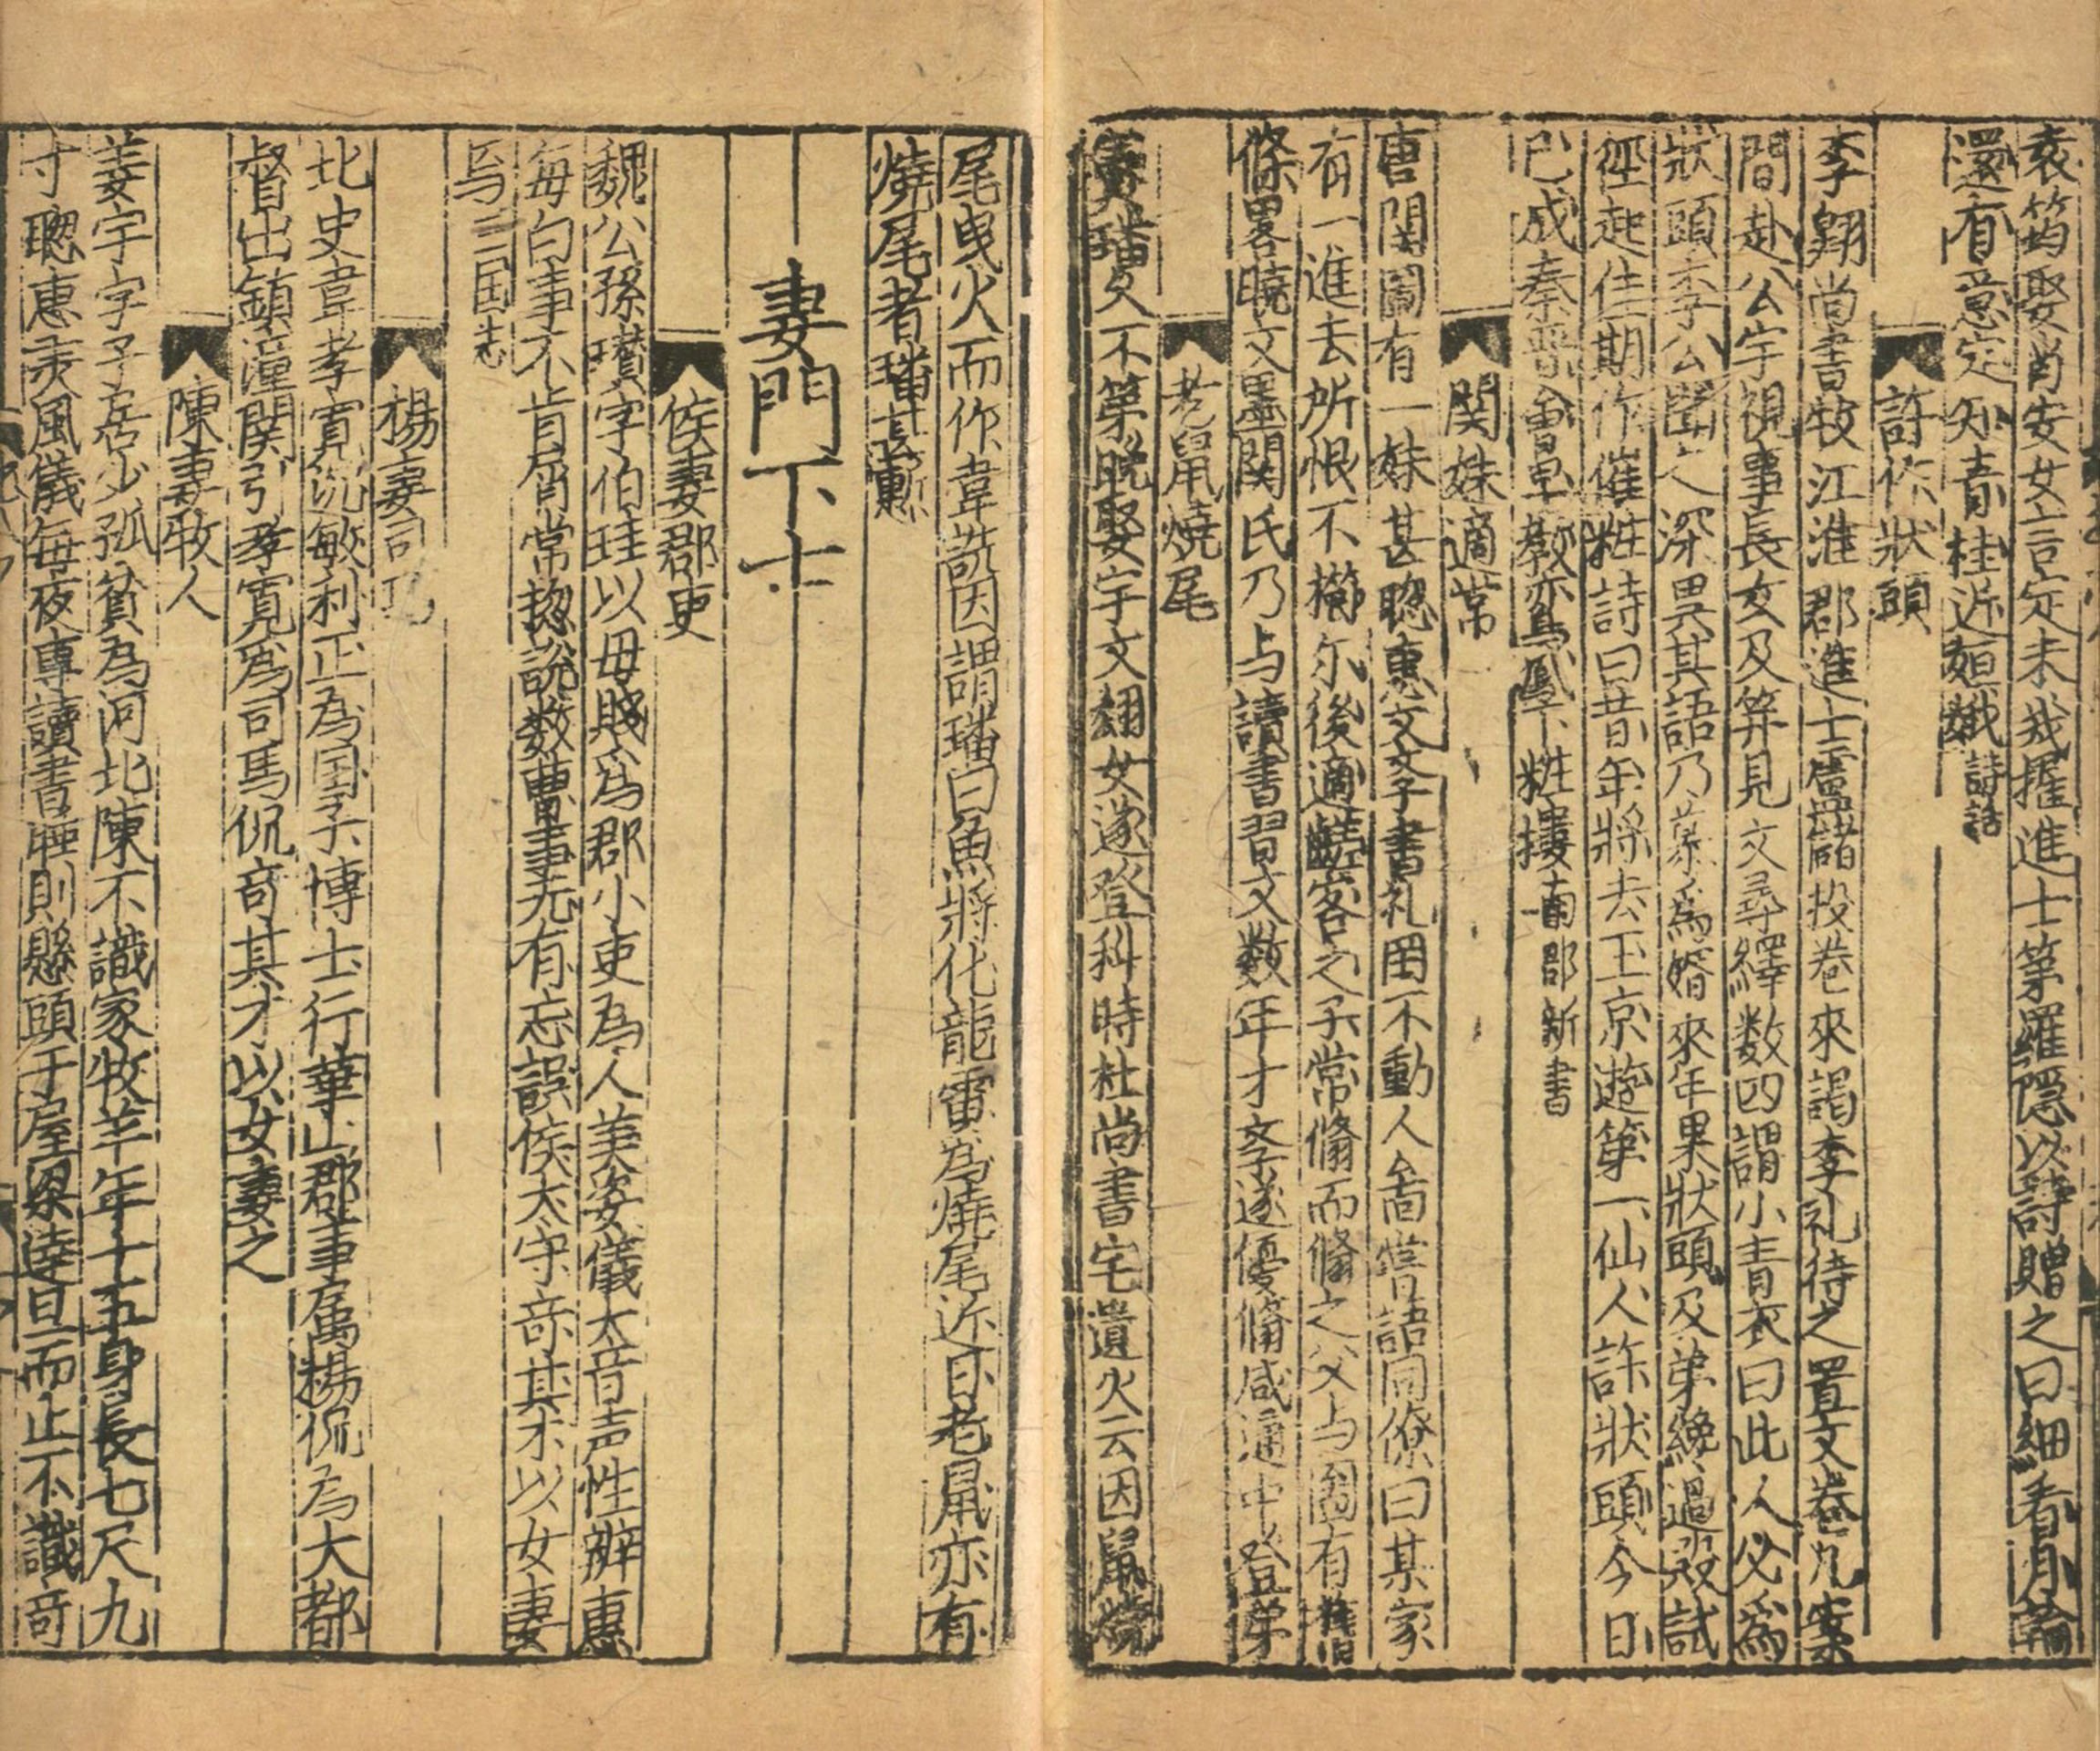 袁筠娶肖安女言定未㦲擢進士第羅隱以詩贈之曰細看月輪
還有意定知青桂近姮娥詩話
許作狀頭
李翱尚書牧江淮郡進士盧儲投卷來謁李礼待之置文卷九案
間赴公宇視事長女及笄見文尋繹数四謂小青衣曰此人必為
狀頭李公聞之深異其語乃慕為婚來年果狀頭及弟纔過殿試
徑赴佳期作催粧詩曰昔年將去玉京遊第一仙人許狀頭今日
已成秦晉會早教鸞鳳下粧樓南郡新書
関妹適常
唐関圖有一妹甚聦惠文斈書礼罔不動人圖嘗語同僚曰某家
有一進士所恨不櫛尔後適醝客之子常脩而脩之父与圖有舊
脩畧曉文墨関氏乃与讀書習文数年才斈遂優脩咸通中登弟
老䑕燒尾
黄璠久不第晩娶宇文翃女遂登科時杜尚書宅遺火云因䑕燒
尾曳火而作韋誥因謂璠曰魚將化龍雷為燒尾近日老䑕亦有
燒尾者璠甚慙
妻門下士
侯妻郡吏
魏公孫瓚字伯珪以毋賤為郡小吏為人美姿儀大音声性辨惠
每白事不肯屑常揔説数曹事无有忘誤侯太守竒其才以女妻
焉三国志
楊妻司馬
北史韋孝寛沉敏利正為国子博士行華山郡事属楊侃為大都
督出鎮潼関引孝寛為司馬侃竒其才以女妻之
陳妻牧人
姜宇字子居少孤貧為河北陳不識家牧羊年十五身長七尺九
寸聦惠美風儀每夜専讀書睡則懸頭于屋梁逹旦而止不識竒